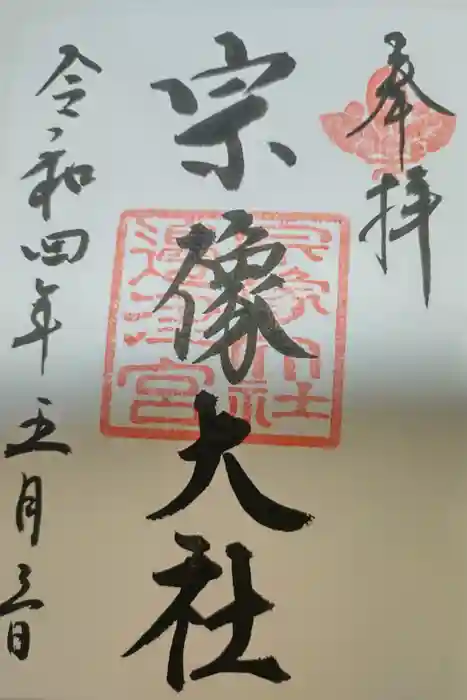 奉拝
宗像大社
宗像大社
邊津宮
令和四年五月三日